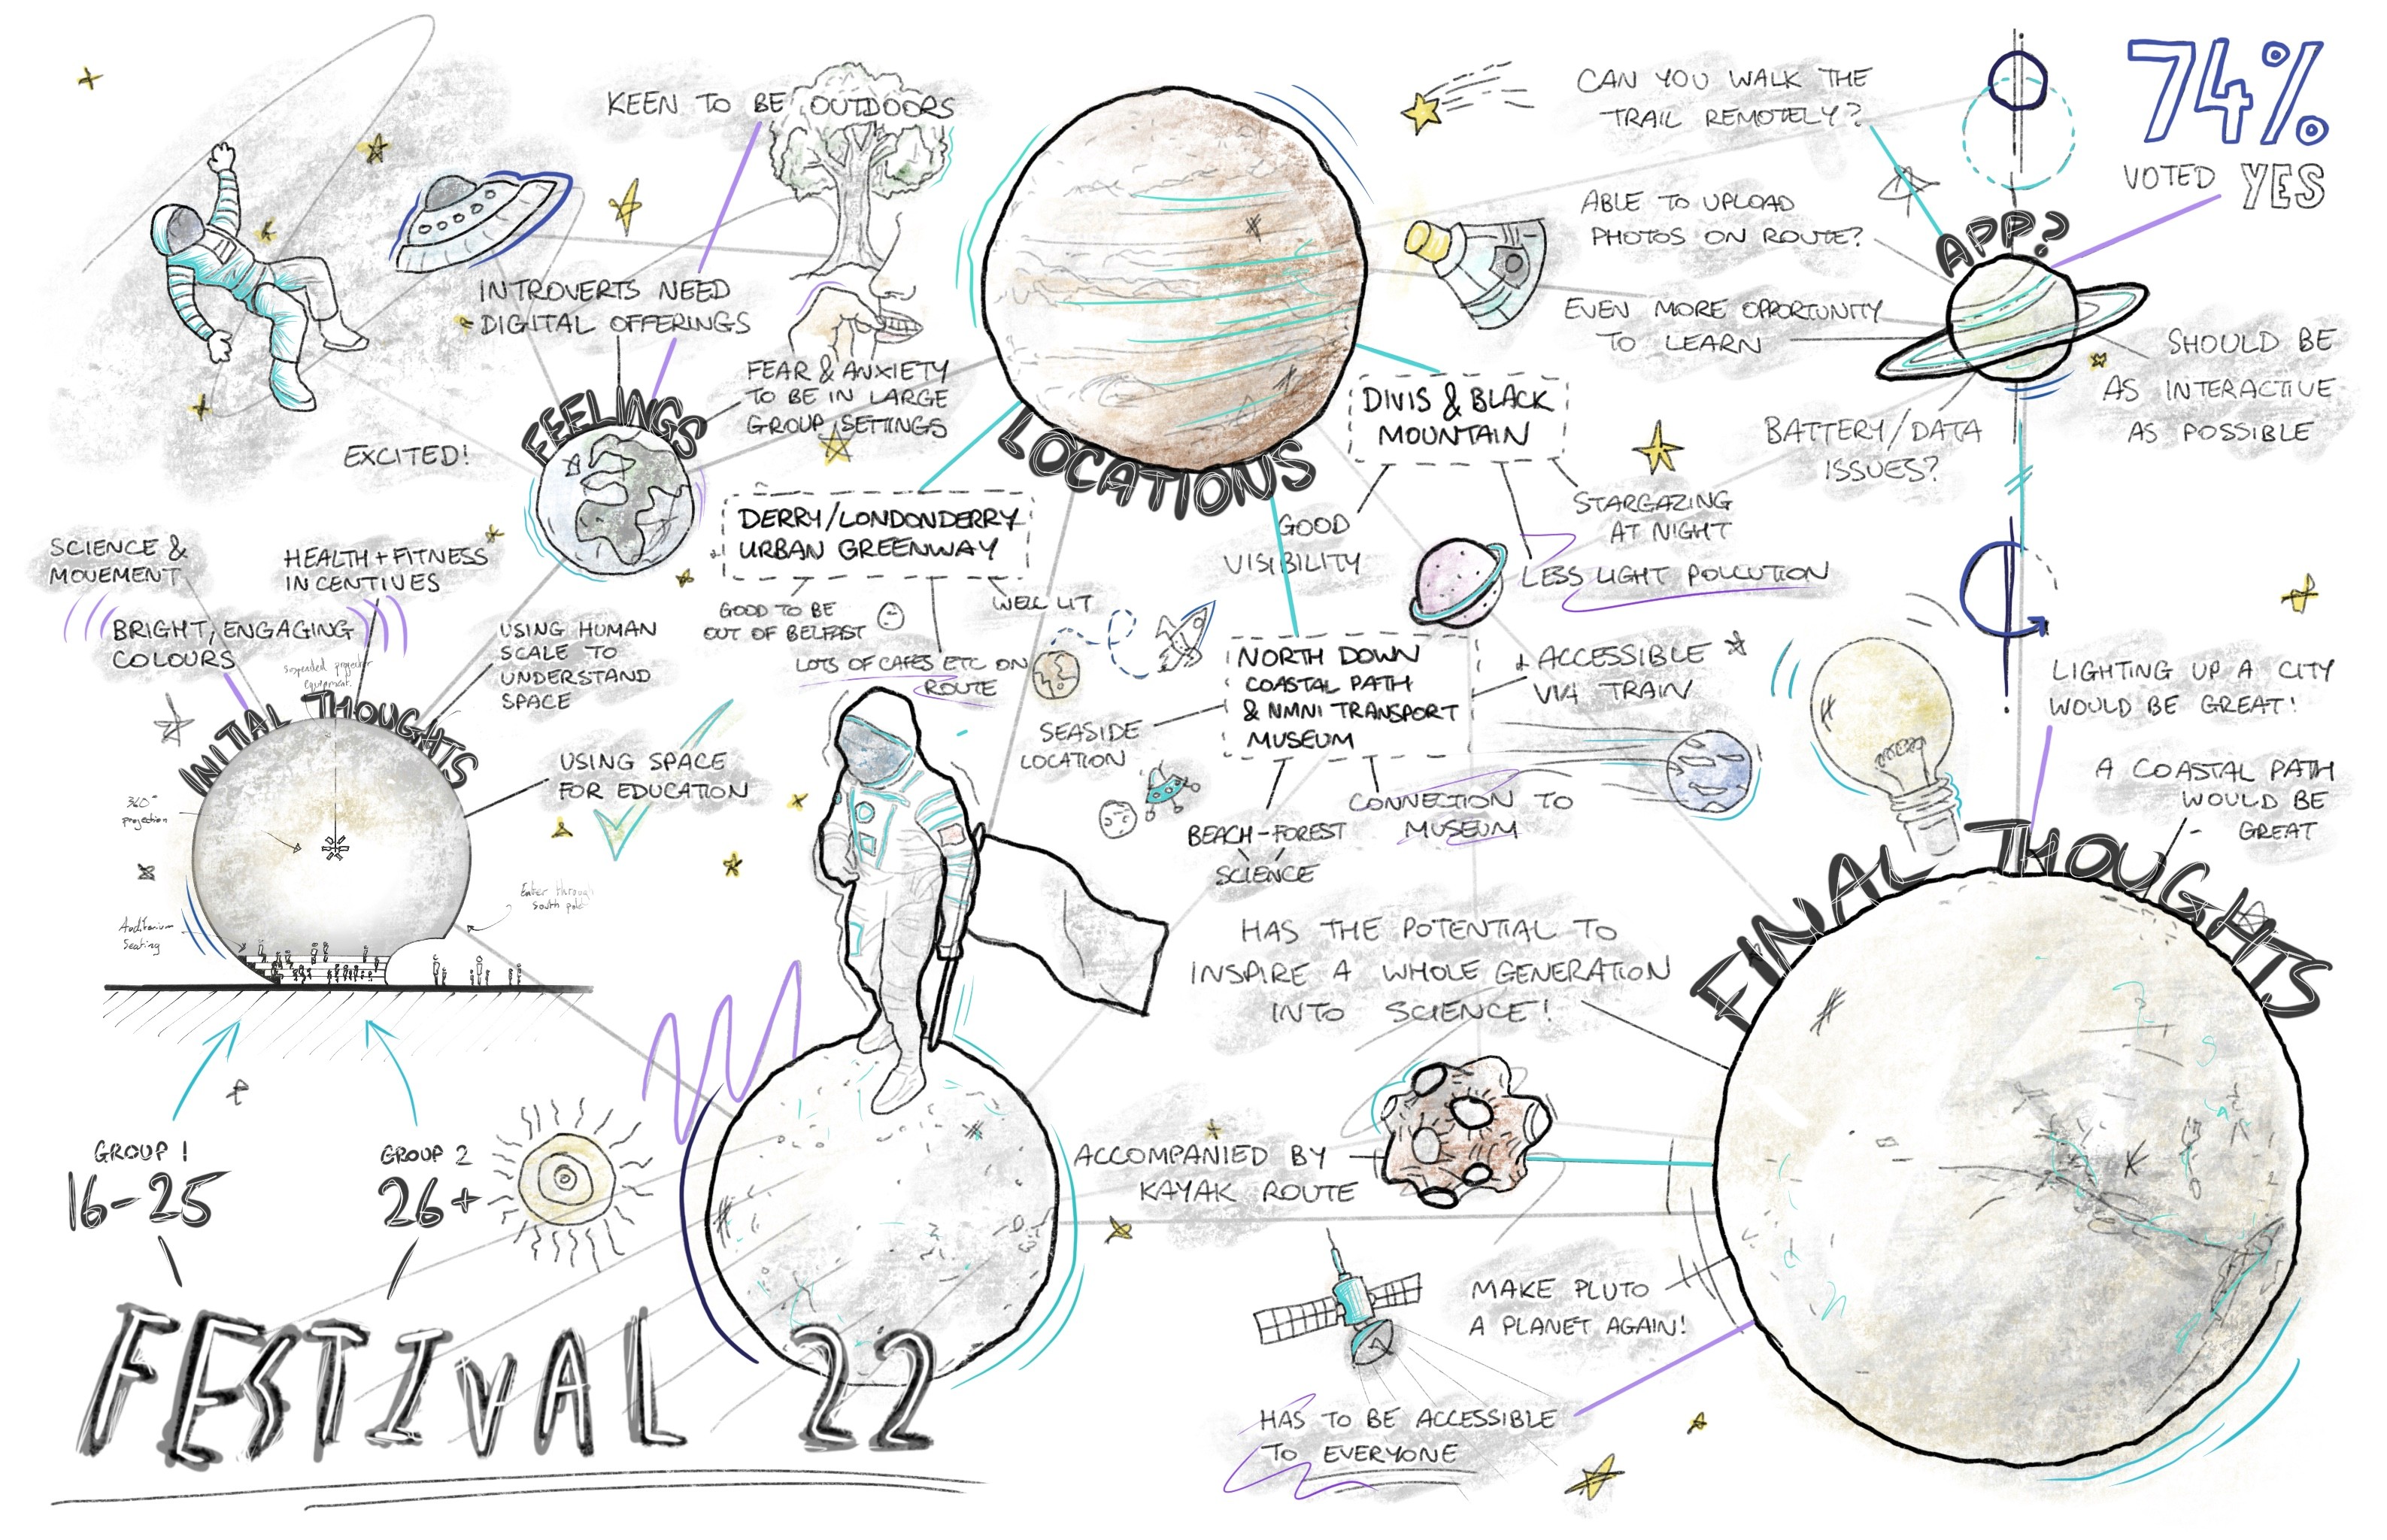 KEEN TO BE OUTDOORS
INTROVERTS NEED
DIGITAL OFFERINGS
FEAR & ANXIETY
TO BE IN LARGE
GROUP SETTINGS
EXCITED!
FEELINGS
SCIENCE &
MOVEMENT
HEALTH + FITNESS
INCENTIVES
BRIGHT, ENGAGING
COLOURS
USING HUMAN
SCALE TO
UNDERSTAND
SPACE
suspended projector
equipment
INITIAL THOUGHTS
USING SPACE
FOR EDUCATION
360°
projection
Auditorium
Seating
Enter through
south pole
GROUP 1
16-25
GROUP 2
26+
FESTIVAL 22
LOCATIONS
DERRY/LONDONDERRY
URBAN GREENWAY
GOOD TO BE
OUT OF BELFAST
WELL LIT
LOTS OF CAFES ETC ON
ROUTE
DIVIS & BLACK
MOUNTAIN
GOOD
VISIBILITY
STARGAZING
AT NIGHT
LESS LIGHT POLLUTION
NORTH DOWN
COASTAL PATH
& NMNI TRANSPORT
MUSEUM
SEASIDE
LOCATION
ACCESSIBLE
VIA TRAIN
BEACH-FOREST
SCIENCE
CONNECTION TO
MUSEUM
CAN YOU WALK THE
TRAIL REMOTELY?
ABLE TO UPLOAD
PHOTOS ON ROUTE?
EVEN MORE OPPORTUNITY
TO LEARN
BATTERY/DATA
ISSUES?
APP?
74%
VOTED YES
SHOULD BE
AS INTERACTIVE
AS POSSIBLE
LIGHTING UP A CITY
WOULD BE GREAT!
A COASTAL PATH
WOULD BE
GREAT
FINAL THOUGHTS
HAS THE POTENTIAL TO
INSPIRE A WHOLE GENERATION
INTO SCIENCE!
ACCOMPANIED BY
KAYAK ROUTE
MAKE PLUTO
A PLANET AGAIN!
HAS TO BE ACCESSIBLE
TO EVERYONE